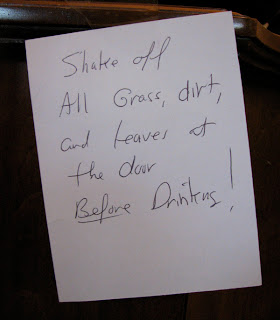 Shake off
All Grass, dirt,
and Leaves at
the door
Before Drinking!